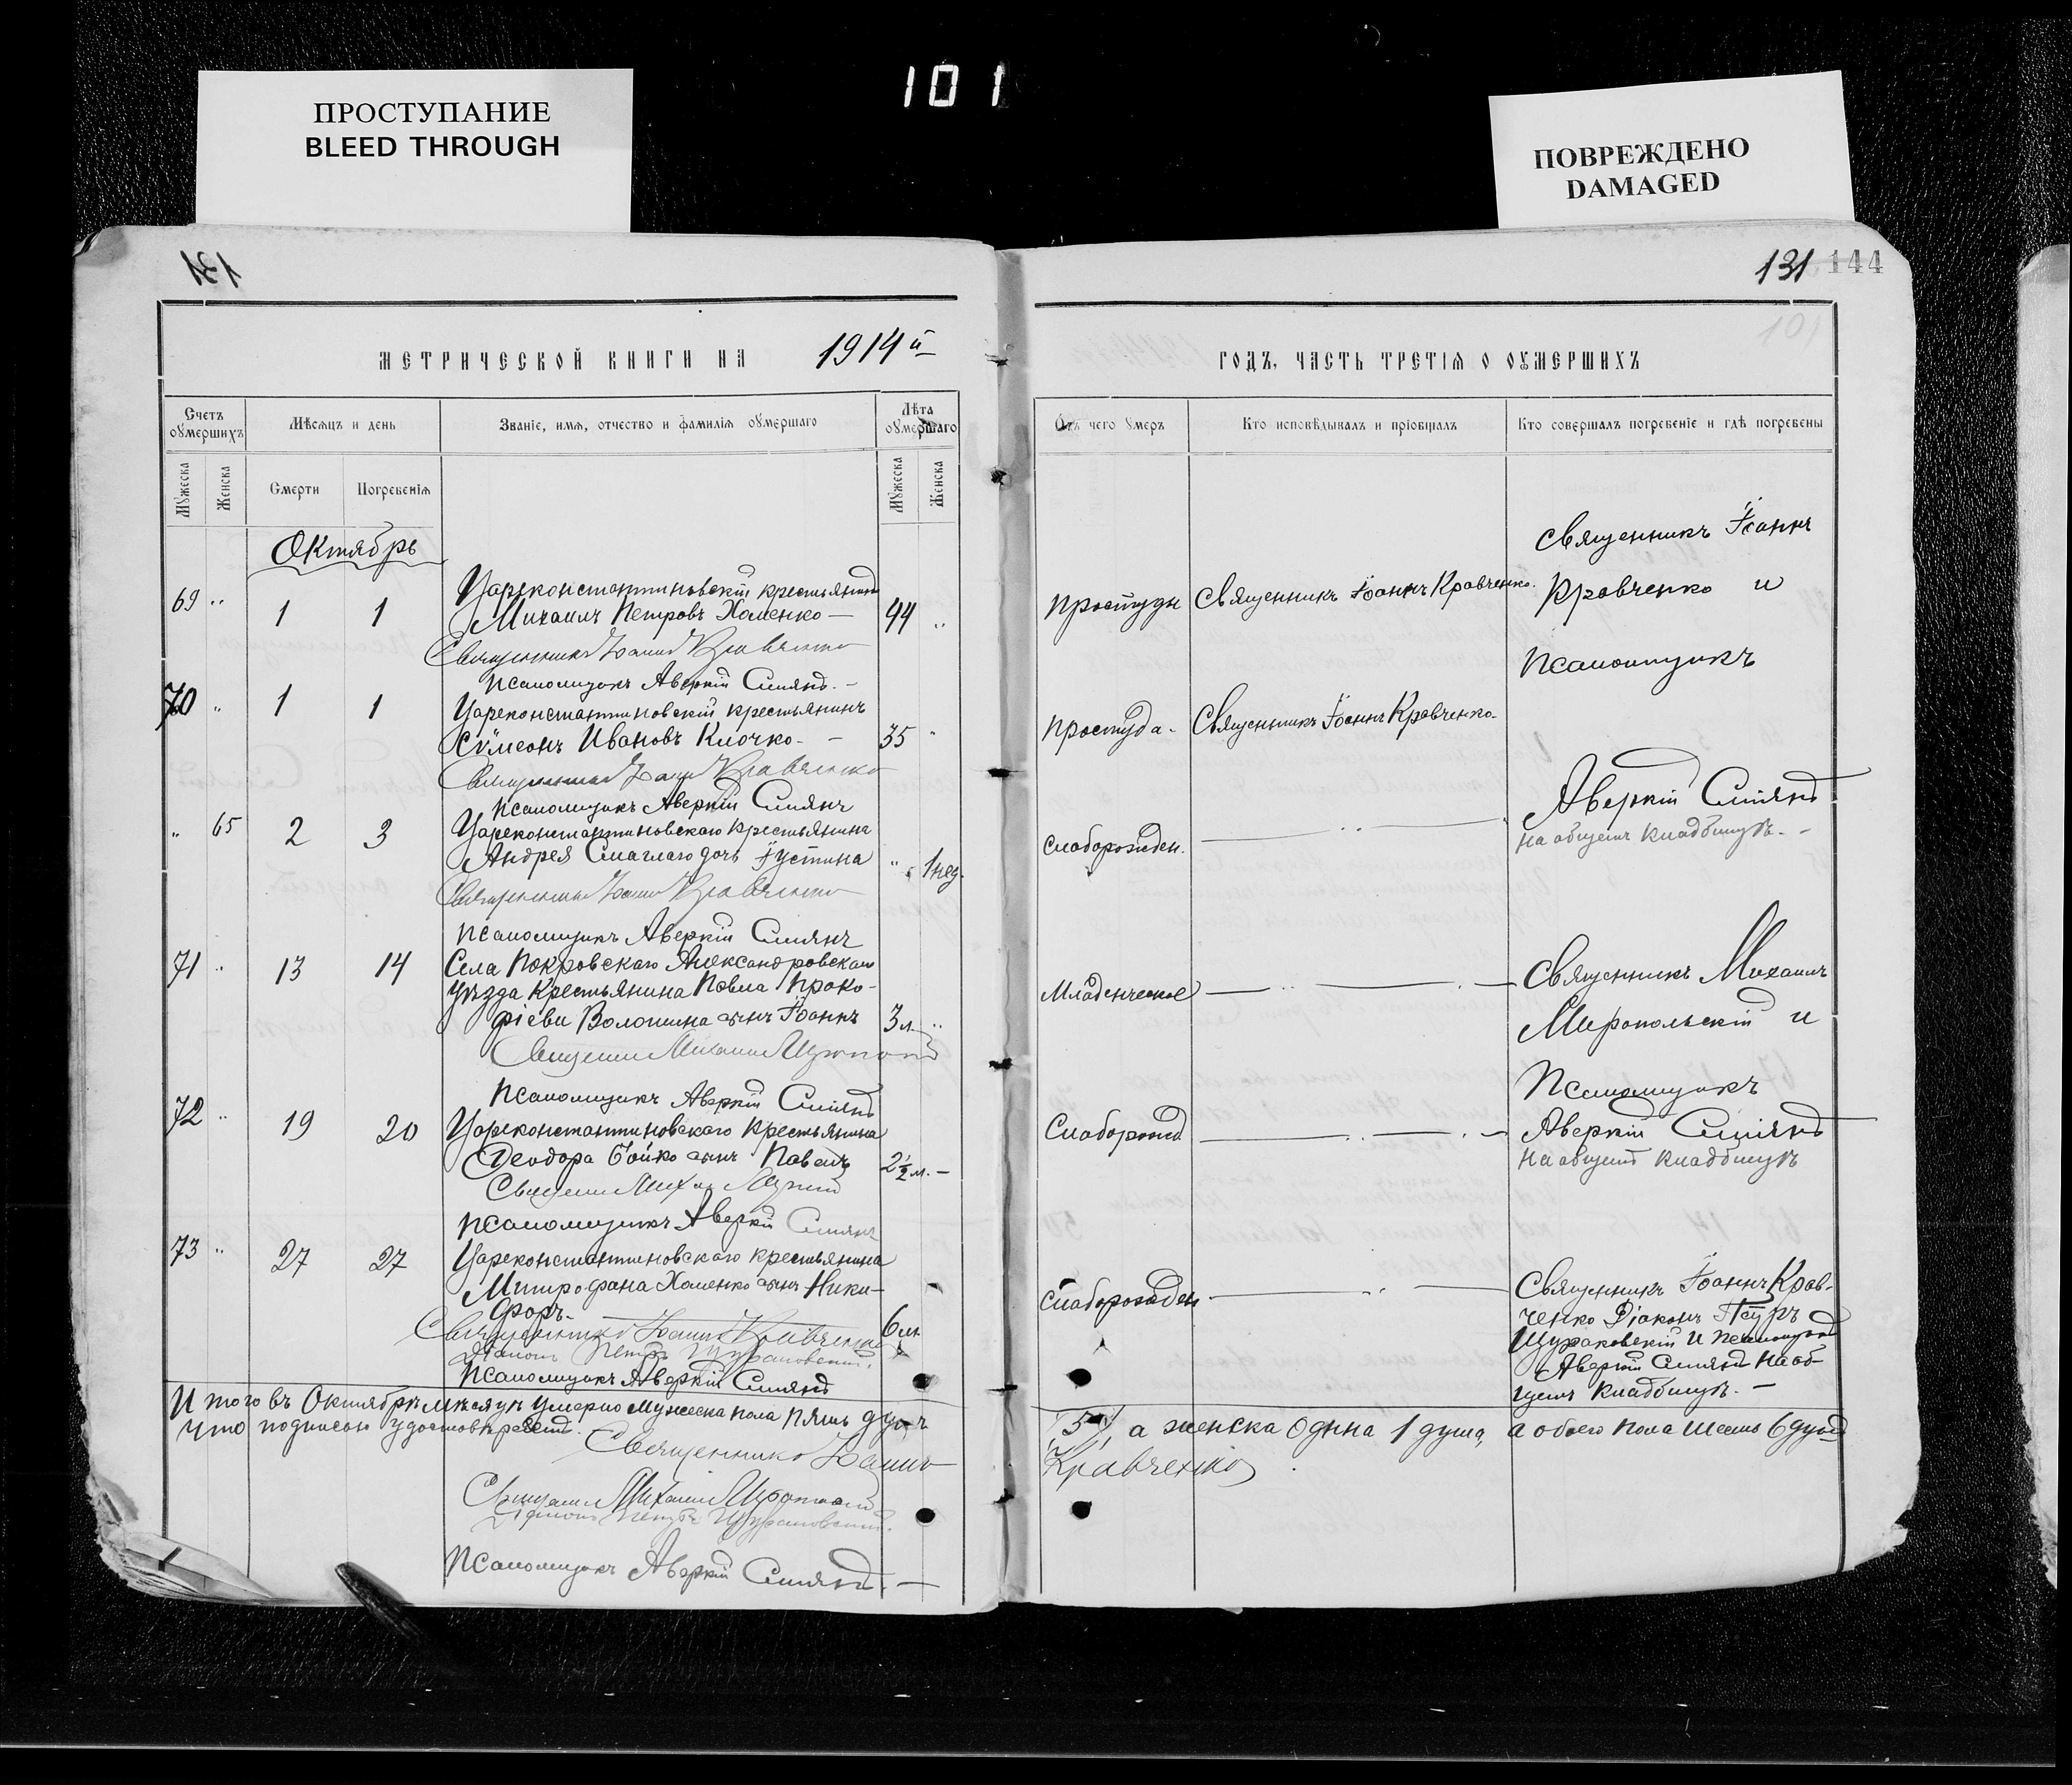 101
ПРОСТУПАНИЕ
BLEED THROUGH
ПОВРЕЖДЕНО
DAMAGED
131
131 144
101
МЕТРИЧЕСКОЙ КНИГИ НА 1914й
Счетъ оумершихъ
Мѣсяцъ и день
Званіе, имя, отчество и фамилія оумершаго
Лѣта оумершаго
Мужеска
Женска
Смерти
Погребенія
Мужеска
Женска
Октябрь
69 " 1 1 Цареконстантиновскій крестьянинъ
Михаилъ Петровъ Хоменко — 44 "
Священникъ Іоаннъ Кравченко
Псаломщикъ Аверкій Смиянъ. —
70 " 1 1 Цареконстантиновскій крестьянинъ
Сѵмеонъ Ивановъ Клочко. — 35 "
Священникъ Іоаннъ Кравченко
Псаломщикъ Аверкій Смиянъ
" 65 2 3 Цареконстантиновскаго крестьянина
Андрея Смаглаго дочь Іустина " 1 нед.
Священникъ Іоаннъ Кравченко
Псаломщикъ Аверкій Смиянъ
71 " 13 14 Села Покровскаго Александровскаго
уѣзда крестьянина Павла Проко-
фіева Волошина сынъ Іоаннъ 3 м. "
Священникъ Михаилъ
Псаломщикъ Аверкій Смиянъ
72 " 19 20 Цареконстантиновскаго крестьянина
Ѳеодора Бойко сынъ Павелъ 2½ м. —
Священникъ Михаилъ
Псаломщикъ Аверкій Смиянъ
73 " 27 27 Цареконстантиновскаго крестьянина
Митрофана Хоменко сынъ Ники-
форъ. — 6 м.
Священникъ Іоаннъ Кравченко
Діаконъ Петръ Щураковскій.
Псаломщикъ Аверкій Смиянъ
Итого въ Октябрѣ мѣсяцѣ умерло мужеска пола пять душъ
Что подписью удостовѣряемъ.
Священникъ Іоаннъ
Священникъ Михаилъ
Діаконъ Петръ Щураковскій.
Псаломщикъ Аверкій Смиянъ. —
ГОДЪ, ЧАСТЬ ТРЕТІЯ О ОУМЕРШИХЪ
Отъ чего умеръ
Кто исповѣдывалъ и пріобщалъ
Кто совершалъ погребеніе и гдѣ погребены
Простуды Священникъ Іоаннъ Кравченко.
Священникъ Іоаннъ
Кравченко и
Псаломщикъ
Простуда. Священникъ Іоаннъ Кравченко.
Аверкій Смиянъ
на общемъ кладбищѣ. —
Слаборожден.
Младенческой
Священникъ Михаилъ
Миропольскій и
Псаломщикъ
Аверкій Смиянъ
на общемъ кладбищѣ
Слаборожд
Слаборожден
Священникъ Іоаннъ Крав-
ченко Діаконъ Петръ
Щураковскій и псаломщикъ
Аверкій Смиянъ на об-
щемъ кладбищѣ. —
(5), а женска одна 1 душа, а обоего пола шесть 6 душъ
Кравченко